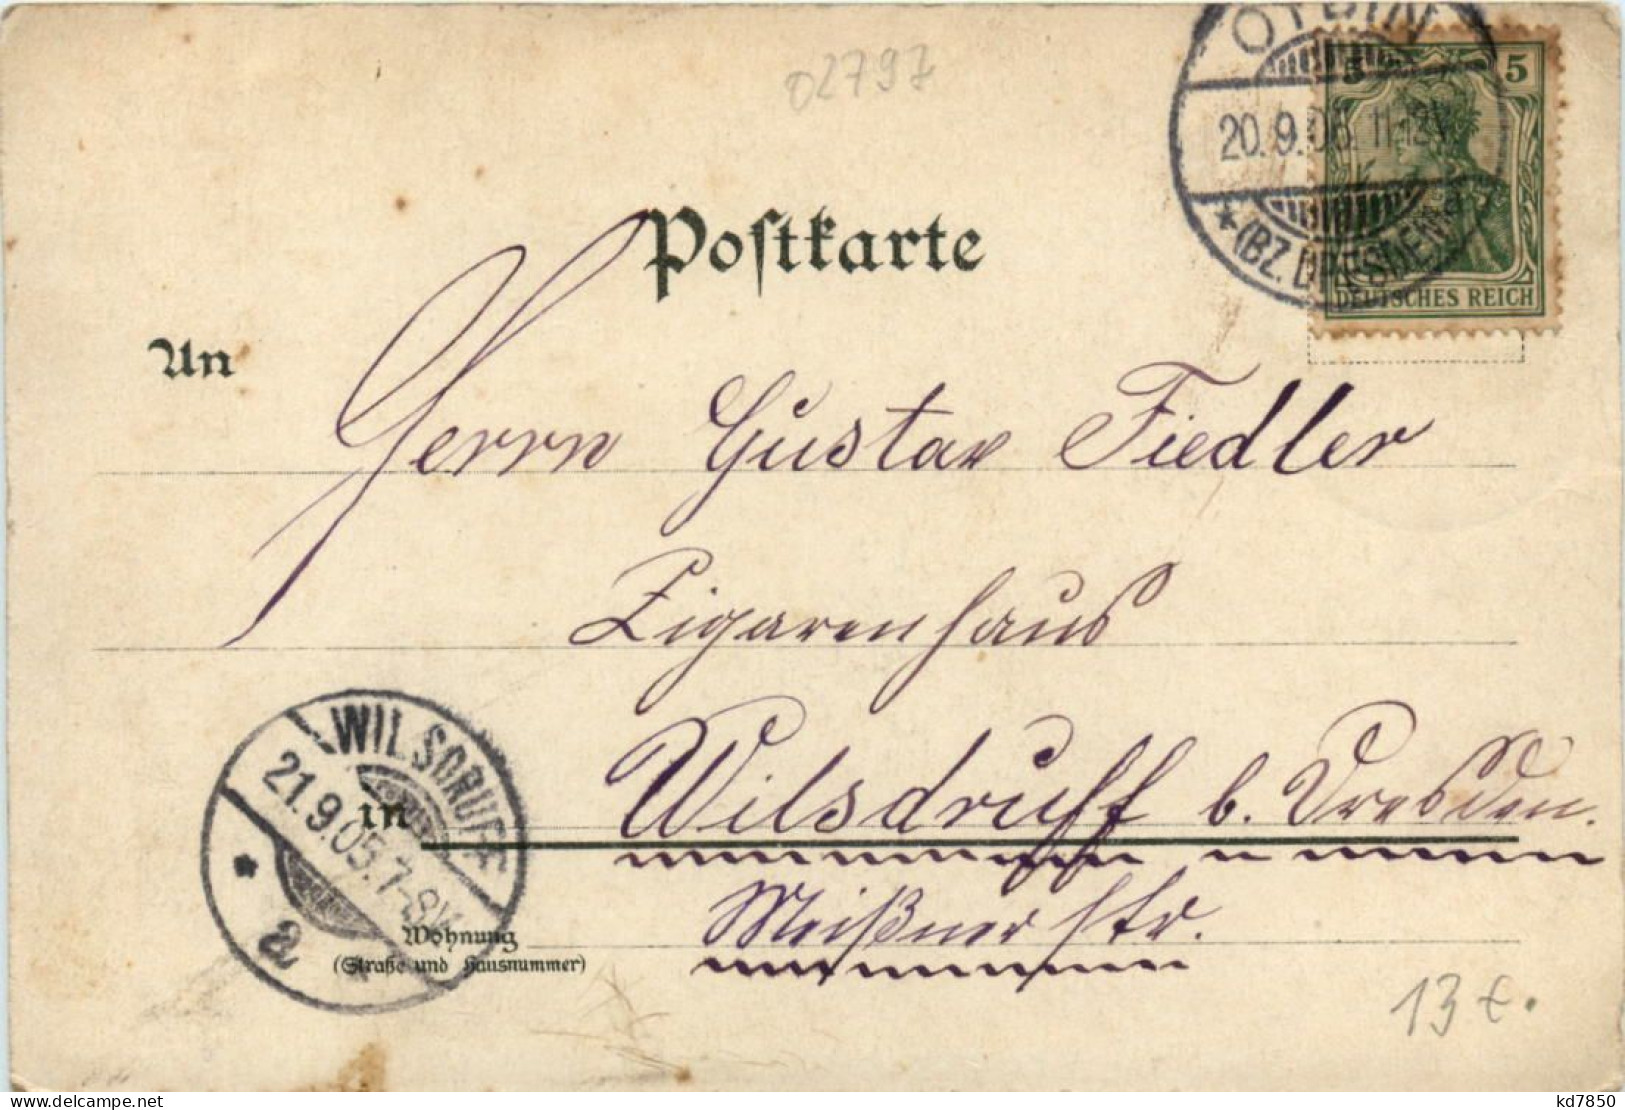 02797
OYBIN
20.9.05. 11-12V.
* (BZ. DRESDEN) a
5 5
DEUTSCHES REICH
Postkarte
An
Herrn Gustav Fiedler
Zigarenhaus
Wilsdruff b. Dresden.
Meißner Str.
in
Wohnung
(Straße und Hausnummer)
WILSDRUFF
21.9.05.7-8V.
* a
13 €.
kd7850